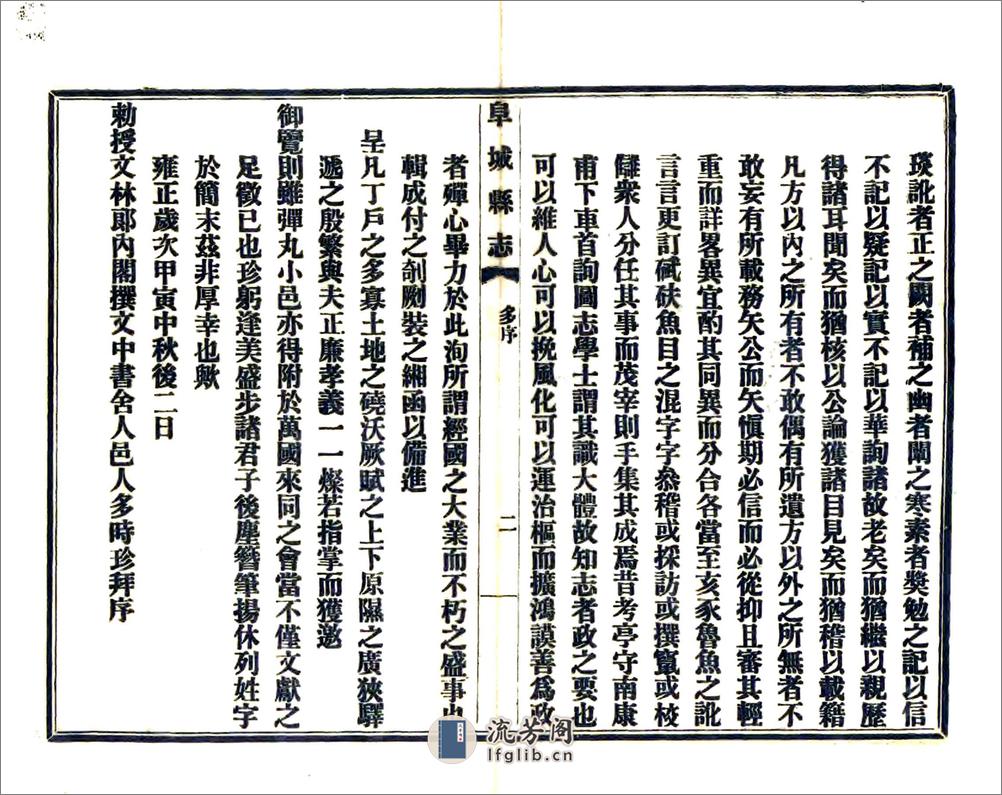 琰訛者正之闕者補之幽者闡之寒素者奬勉之記以信
不記以疑記以實不記以華詢諸故老矣而猶繼以親歷
得諸耳聞矣而猶核以公論獲諸目見矣而猶稽以載籍
凡方以內之所有者不敢偶有所遺方以外之所無者不
敢妄有所載務矢公而矢愼期必信而必從抑且審其輕
重而詳畧異宜酌其同異而分合各當至亥豕魯魚之訛
言言更訂碔砆魚目之混字字叅稽或採訪或撰竄或校
讎衆人分任其事而茂宰則手集其成焉昔考亭守南康
甫下車首詢圖志學士謂其識大體故知志者政之要也
可以維人心可以挽風化可以運治樞而擴鴻謨善爲政
阜城縣志 多序 二
者殫心畢力於此洵所謂經國之大業而不朽之盛事也
輯成付之剞劂裝之緗函以備進
呈凡丁戶之多寡土地之磽沃厥賦之上下原隰之廣狹驛
遞之殷繁與夫正廉孝義一一燦若指掌而獲邀
御覽則雖彈丸小邑亦得附於萬國來同之會當不僅文獻之
足徵已也珍躬逢美盛步諸君子後塵簪筆揚休列姓字
於簡末茲非厚幸也歟
雍正歲次甲寅中秋後二日
勅授文林郞內閣撰文中書舍人邑人多時珍拜序
流芳阁
lfglib.cn